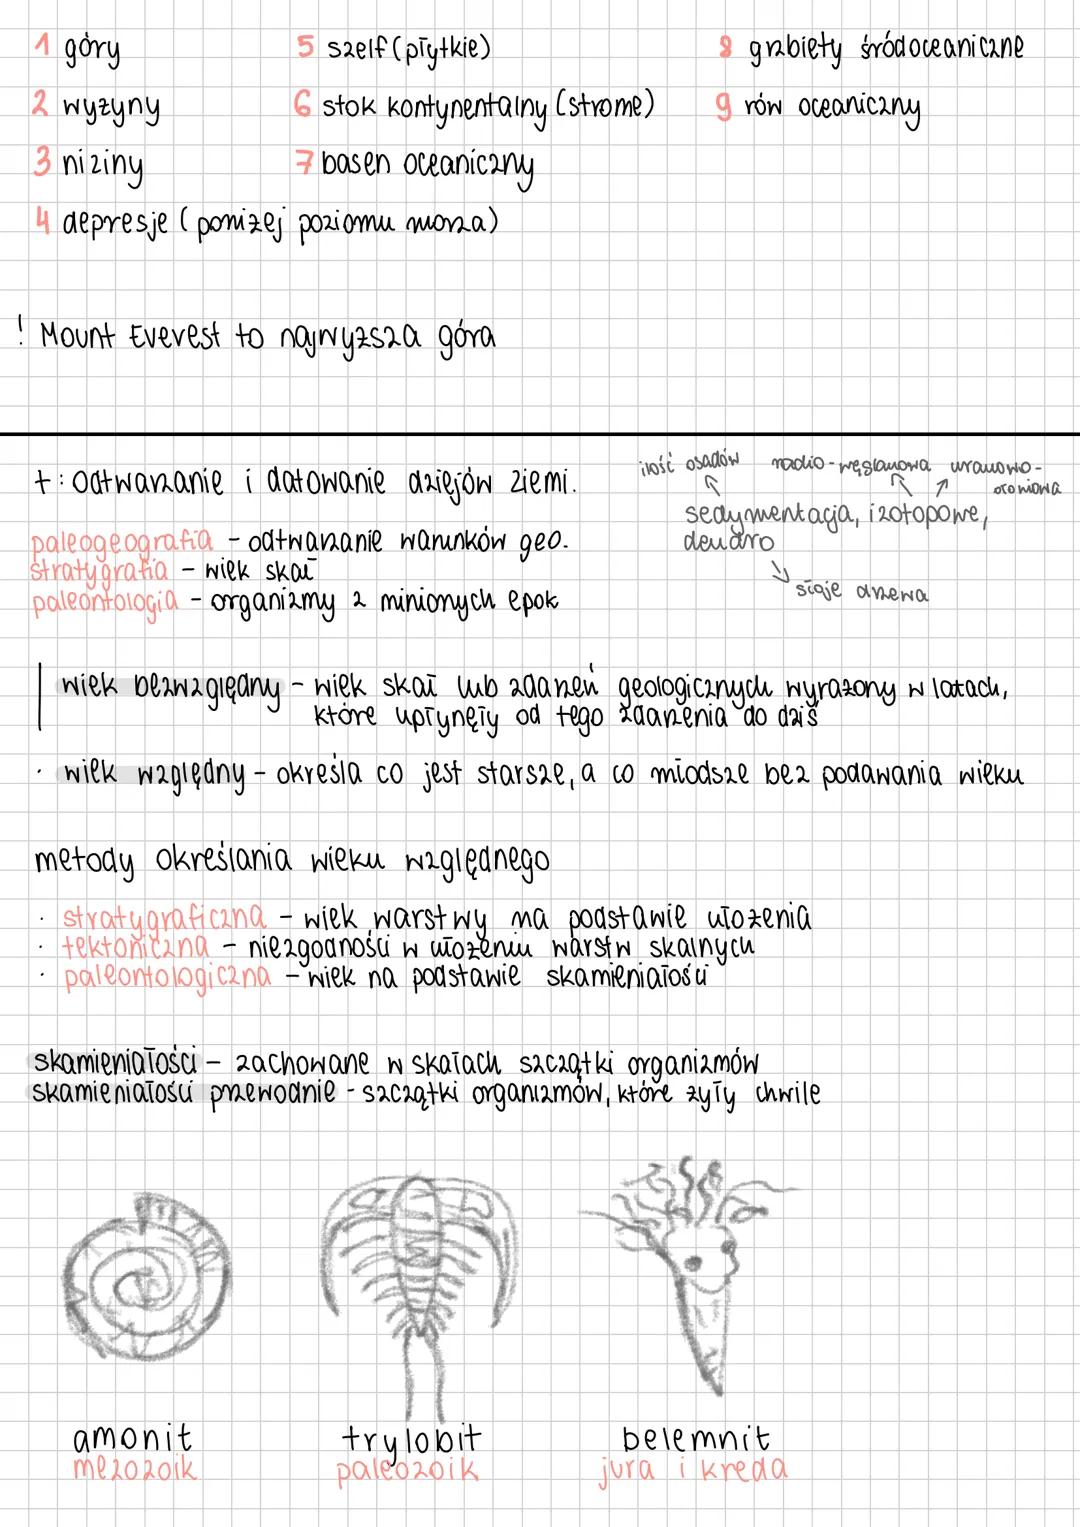 1 góry
2 wyżyny
3 niziny
4 depresje (poniżej poziomu morza)
5 szelf (płytkie)
6 stok kontynentalny (strome)
7 basen oceaniczny
8 grzbiety śródoceaniczne
9 rów oceaniczny
! Mount Everest to najwyższa góra
t: Odtwarzanie i datowanie dziejów Ziemi.
paleogeografia - odtwarzanie warunków geo.
stratygrafia - wiek skał
paleontologia - organizmy z minionych epok
ilość osadów radio-węglanowa uranowo-
ołowiowa
sedymentacja, izotopowe,
dendro
słoje drzewa
wiek bezwzględny - wiek skał lub zdarzeń geologicznych wyrażony w latach,
które upłynęły od tego zdarzenia do dziś
· wiek względny - określa co jest starsze, a co młodsze bez podawania wieku
metody określania wieku względnego
· stratygraficzna - wiek warstwy na podstawie ułożenia
· tektoniczna - niezgodności w ułożeniu warstw skalnych
· paleontologiczna - wiek na podstawie skamieniałości
skamieniałości - zachowane w skałach szczątki organizmów
skamieniałości przewodnie - szczątki organizmów, które żyły chwile
amonit
mezozoik
trylobit
paleozoik
belemnit
jura i kreda